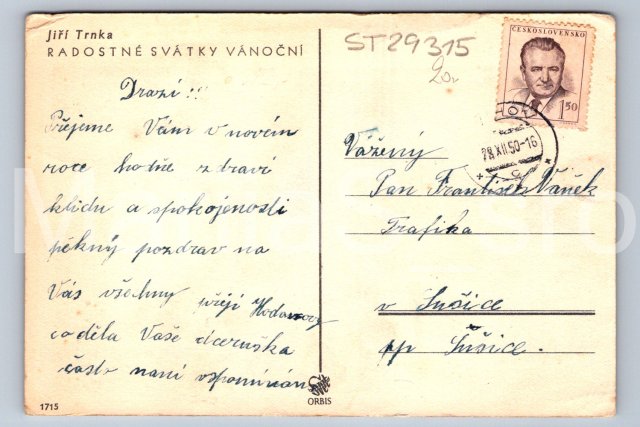 Jiří Trnka
RADOSTNÉ SVÁTKY VÁNOČNÍ
ST29315
20,-
ČESKOSLOVENSKO
1.50
28.XII.50-16
Drazí!!
Přejeme Vám v novém
roce hodně zdraví
klidu a spokojenosti
pěkný pozdrav na
Vás všechny přejí
co děla Vaše dceruška
často naní vspomínám
Vážený
Pan František Vaněk
Trafika
v Sušice
pp Sušice.
ORBIS
1715